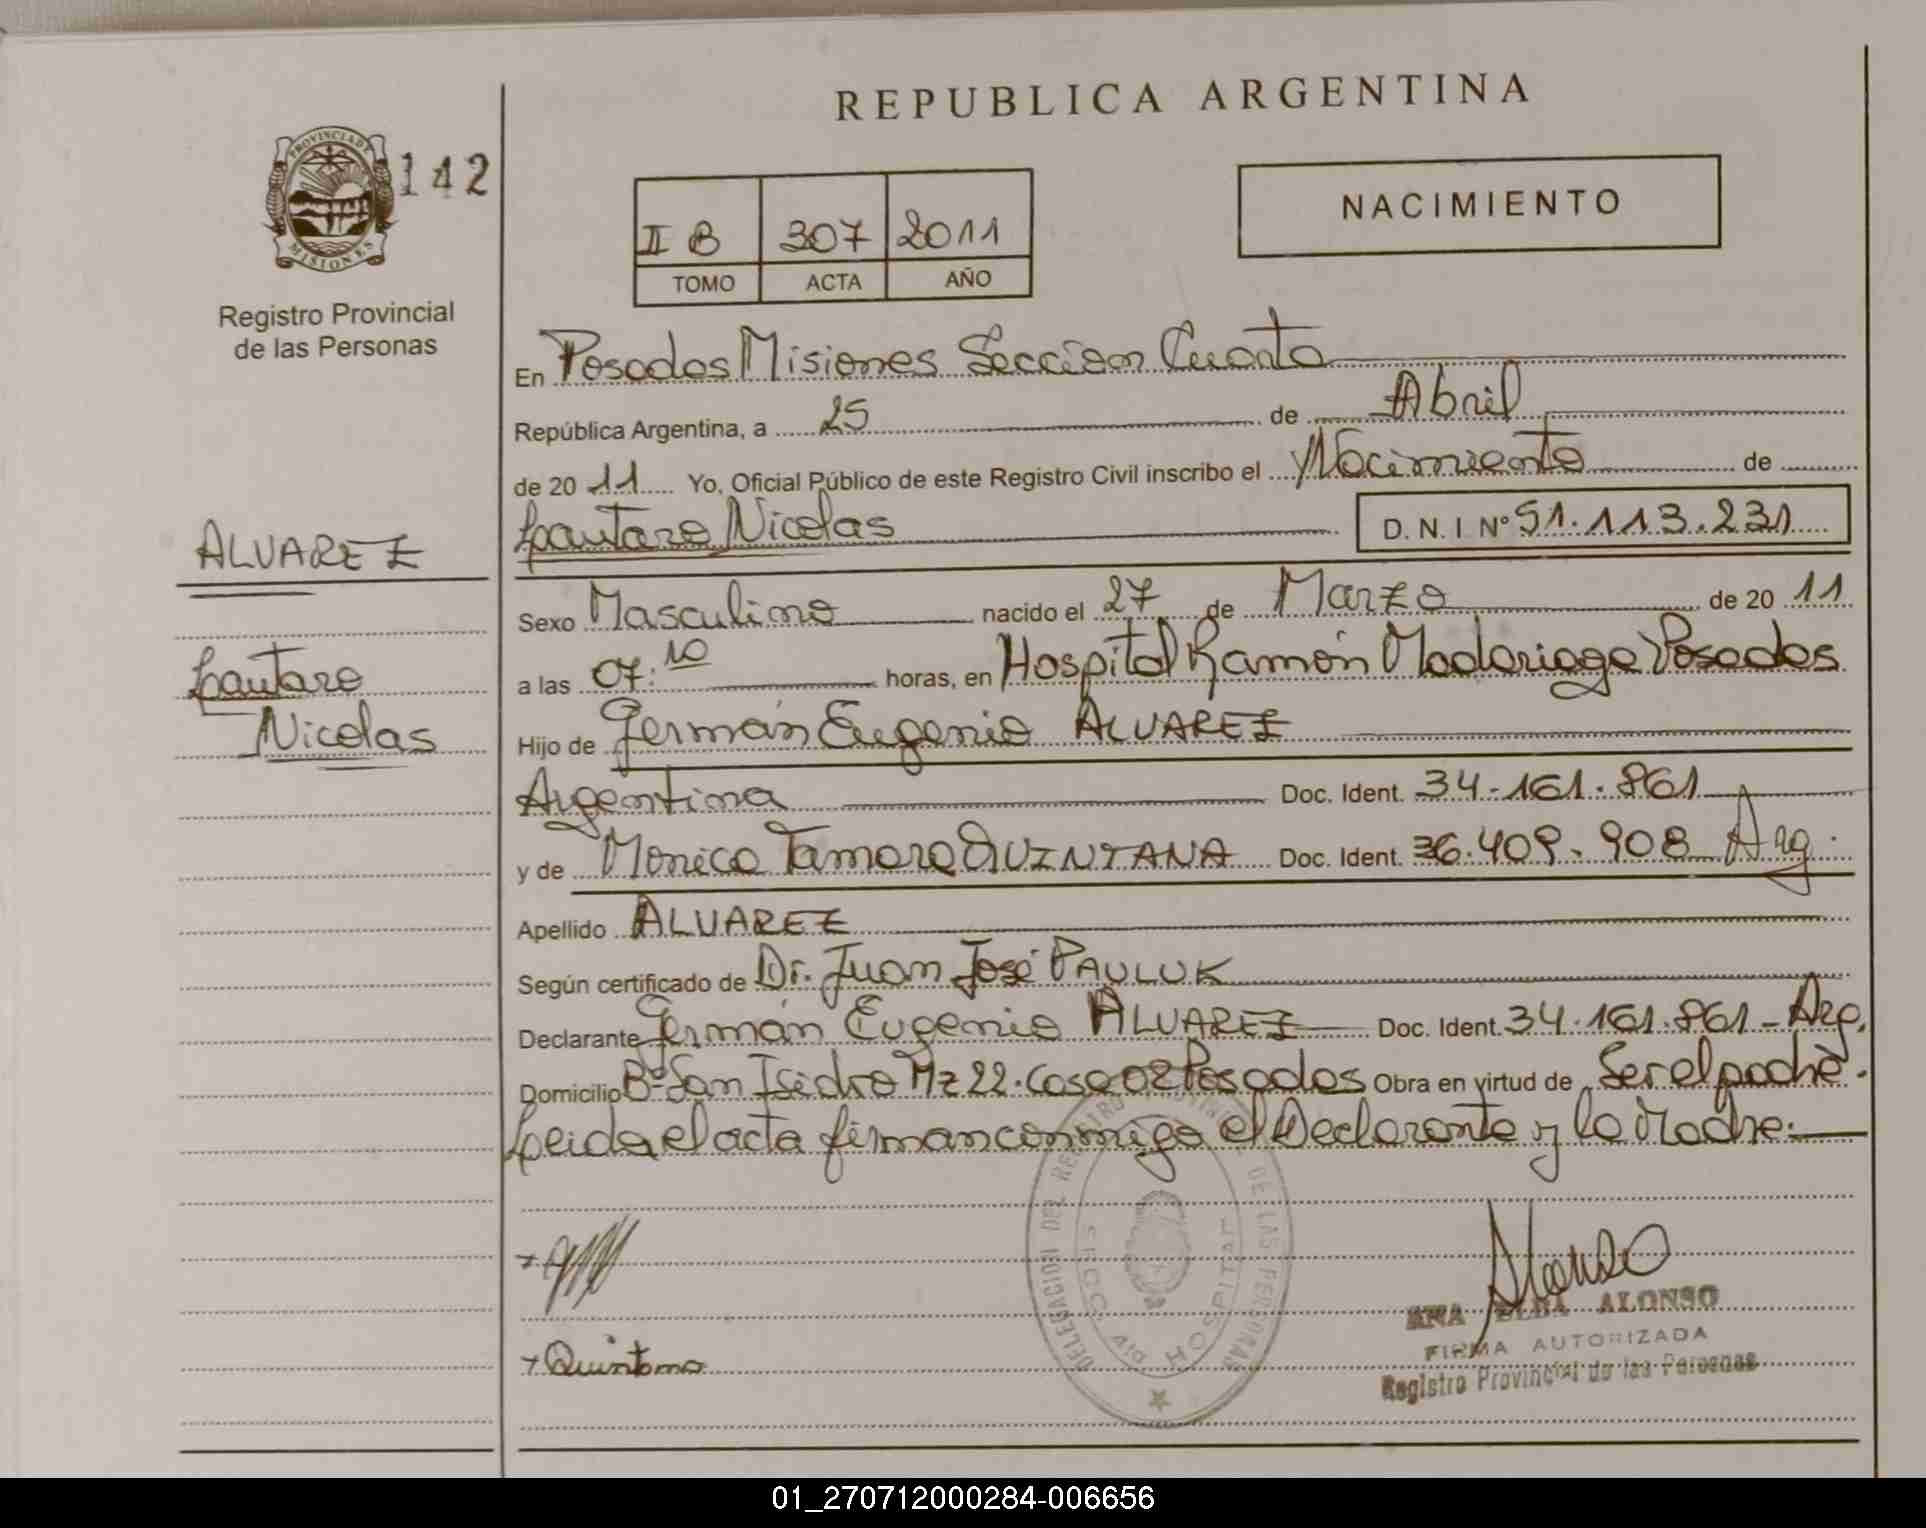 REPUBLICA ARGENTINA
PROVINCIA DE MISIONES
142
Registro Provincial
de las Personas
II B 307 2011
TOMO ACTA AÑO
NACIMIENTO
En Posadas Misiones Sección Cuarta
República Argentina, a 25 de Abril
de 20 11 Yo, Oficial Público de este Registro Civil inscribo el Nacimiento de
Lautaro Nicolas D.N.I Nº 51.113.231
ALVAREZ
Lautaro
Nicolas
Sexo Masculino nacido el 27 de Marzo de 20 11
a las 07:10 horas, en Hospital Ramón Madariaga Posadas
Hijo de Germán Eugenio ALVAREZ
Argentina Doc. Ident. 34.161.861
y de Monica Tamara QUINTANA Doc. Ident. 36.409.908 Arg.
Apellido ALVAREZ
Según certificado de Dr. Juan José PAULUK
Declarante Germán Eugenio ALVAREZ Doc. Ident. 34.161.861 - Arg.
Domicilio Bº San Isidro Mz 22. Casa 02 Posadas Obra en virtud de Ser el padre.
Leida el acta firman conmigo el Declarante y la Madre.
DELEGACION DEL REGISTRO DE LAS PERSONAS
SECC. HOSPITAL
Quintana
ANA ELBA ALONSO
FIRMA AUTORIZADA
Registro Provincial de las Personas
01_270712000284-006656